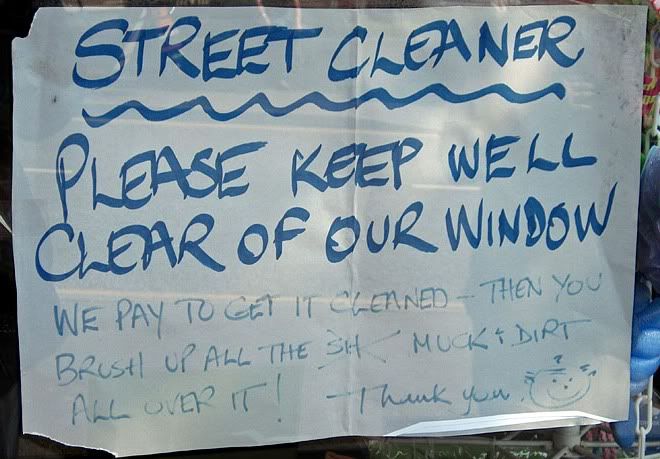 STREET CLEANER
PLEASE KEEP WELL
CLEAR OF OUR WINDOW
WE PAY TO GET IT CLEANED - THEN YOU
BRUSH UP ALL THE SH MUCK & DIRT
ALL OVER IT! - Thank you.